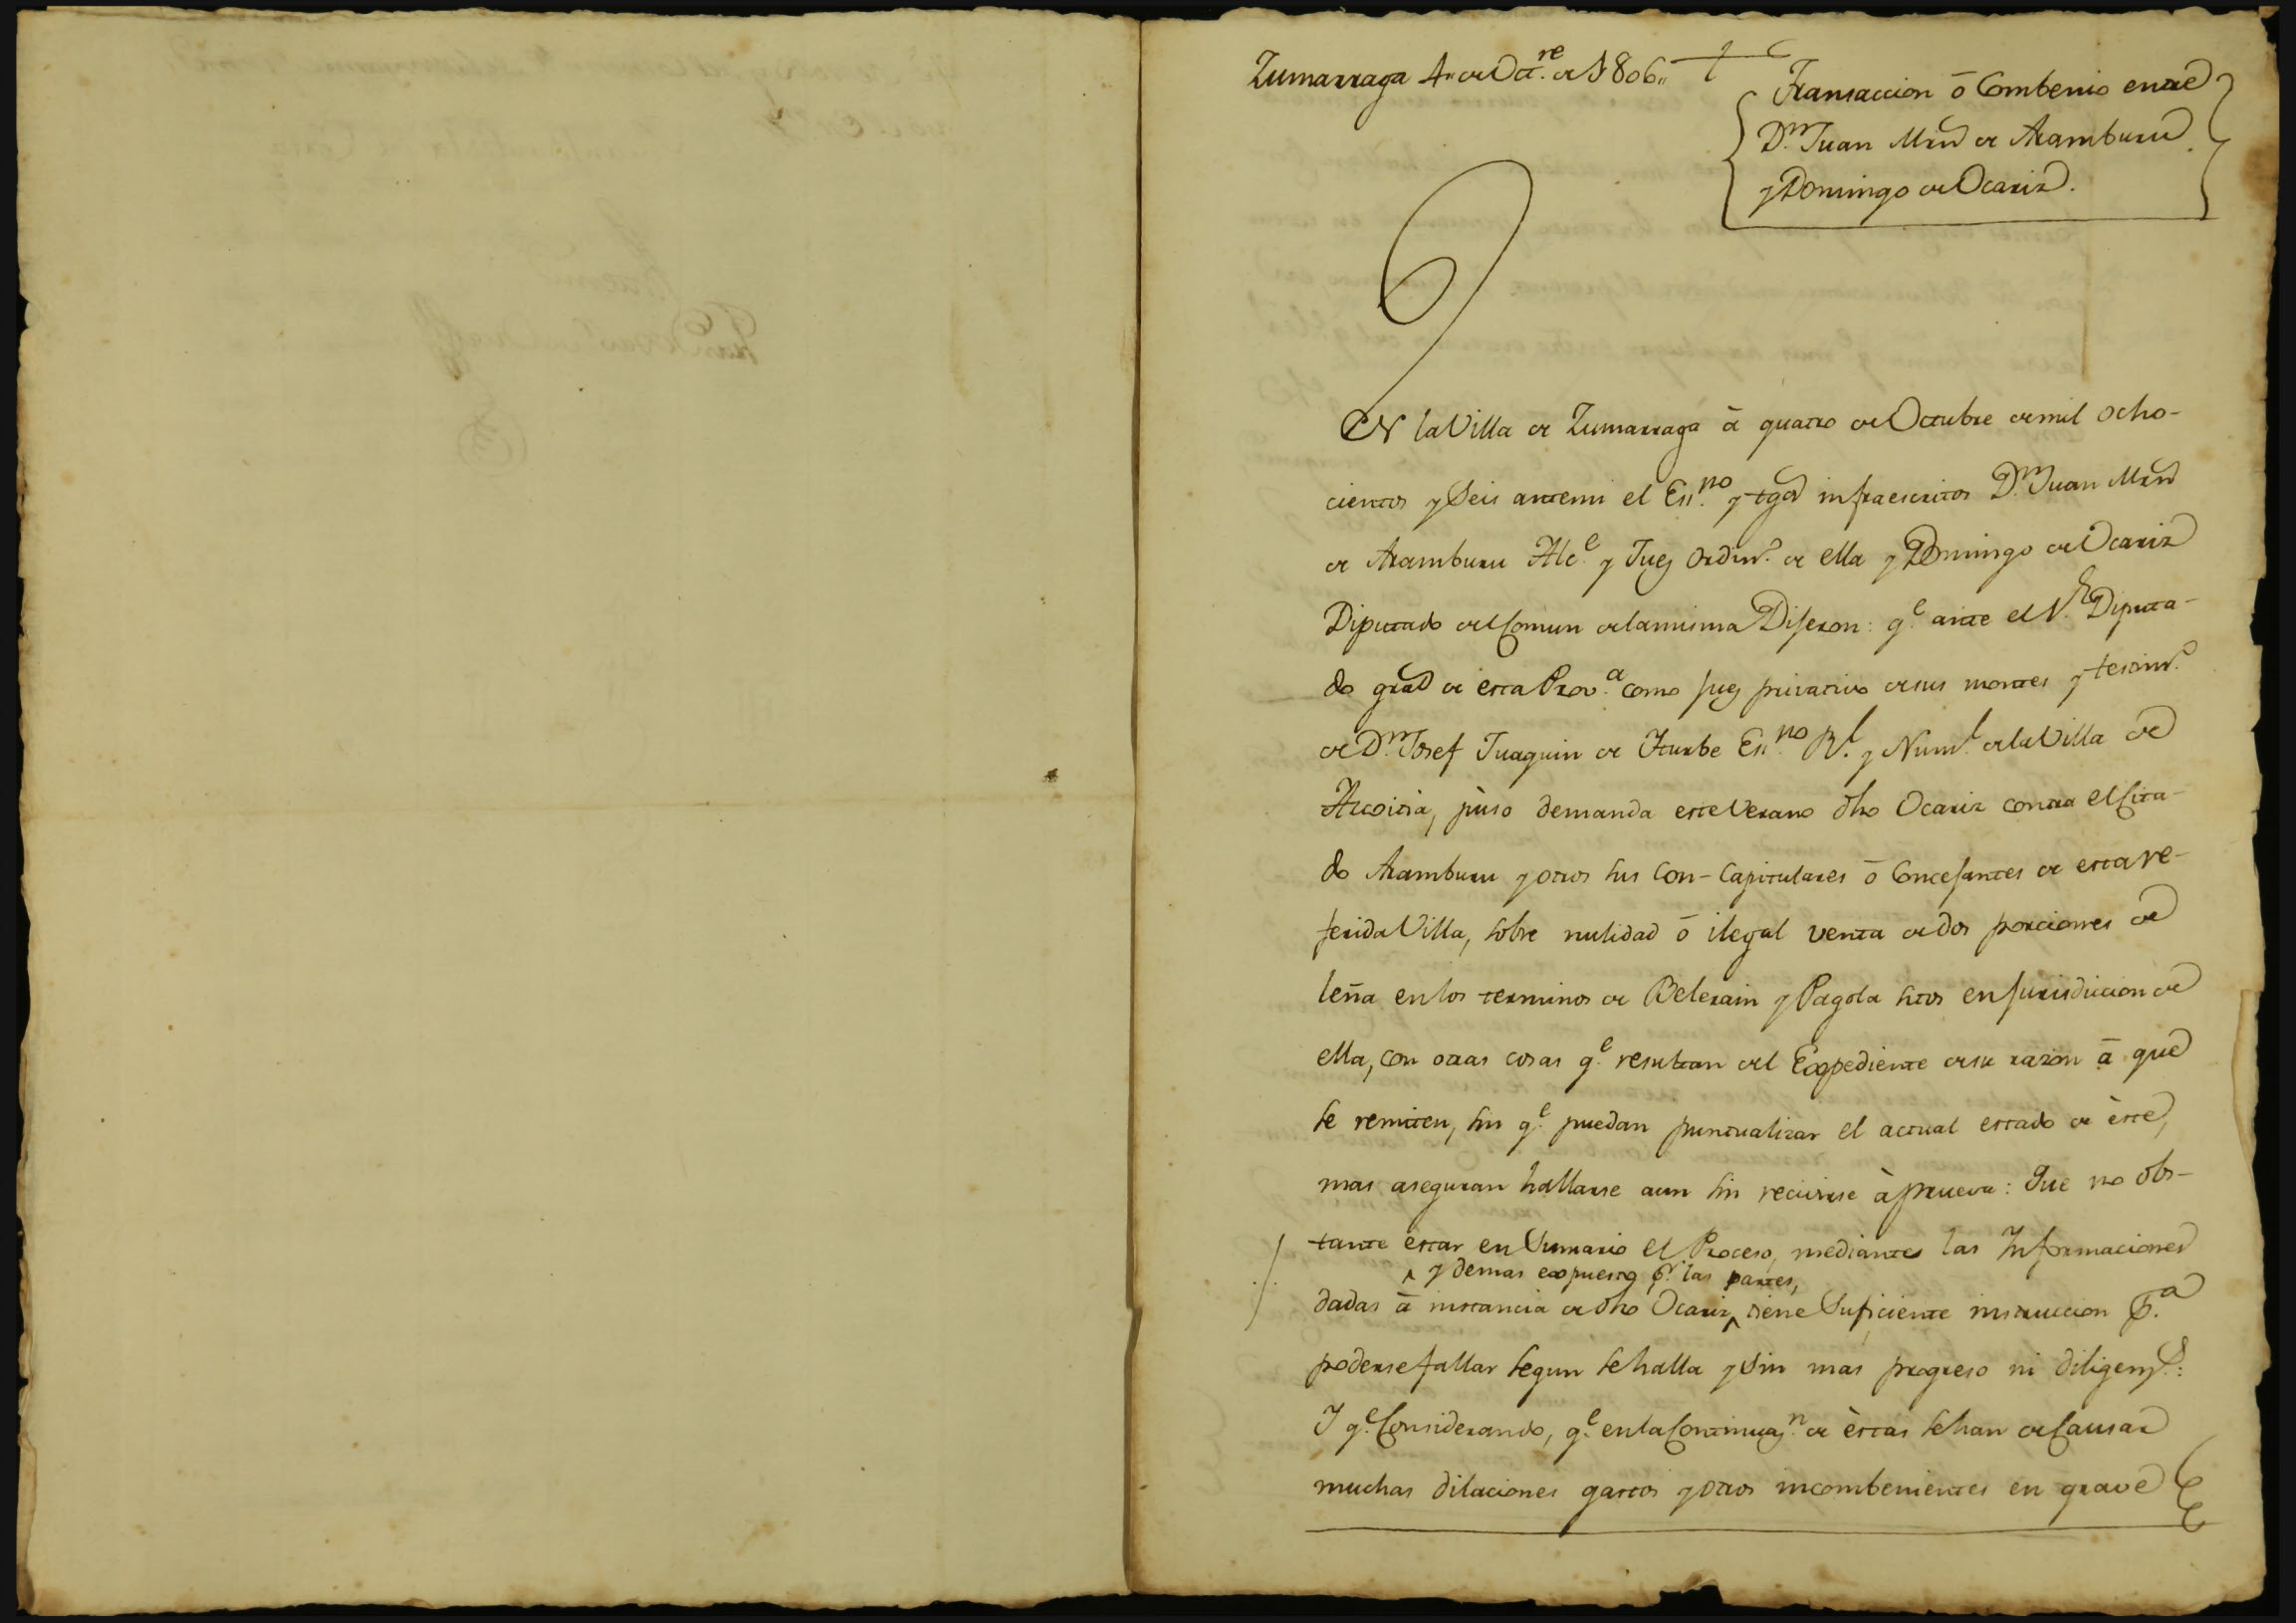 Zumarraga 4" de Oct.re de 1806"
Transaccion ò Combenio entre
D.n Juan Mrn de Aramburu
y Domingo de Ocariz.
EN la Villa de Zumarraga à quatro de Octubre de mil ocho-
cientos y Seis ante mi el Ess.no y tgos infraescritos D.n Juan Mrn
de Aramburu Alc.e y Juez ordin.o de ella y Domingo de Ocariz
Diputado del Comun de la misma Dijeron: q.e ante el S.r Diputa-
do gral de esta Prov.a como Juez privativo de sus montes y testim.o
de D.n Josef Juaquin de Yturbe Ess.no R.l y Num.l de la Villa de
Azcoitia, pùso demanda este Verano dho Ocariz contra el Cita-
do Aramburu y otros sus Con-Capitulares ò Concejantes de esta re-
ferida Villa, sobre nulidad ò ilegal venta de dos porciones de
leña en los terminos de Belerain y Pagola sitos en Jurisdiccion de
ella, con otras cosas q.e resultan del Expediente de su razon à que
se remiten, sin q.e puedan puntualizar el actual estado de èste,
mas aseguran hallarse aun sin recivirse à prueva: Que no obs-
tante estar en Sumario el Proceso, mediantes las Informaciones
y demas expuesto p.r las partes,
dadas à instancia de dho Ocariz, tiene Suficiente instruccion p.a
poderse fallar segun se halla y Sin mas progreso ni diligenz.s:
Y q.e Considerando, q.e en la Continuaz.n de èstas se han de Causar
muchas dilaciones gastos y otros incombenientes en grave